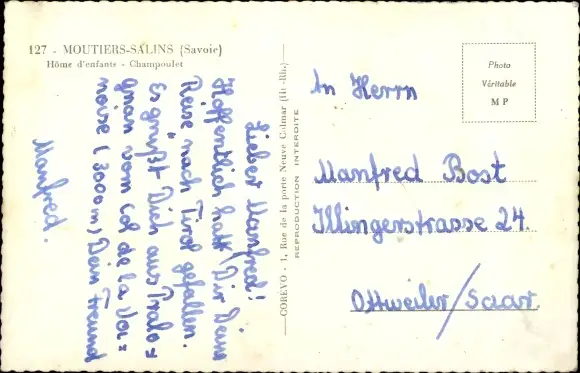 127 - MOUTIERS-SALINS (Savoie)
Hôme d'enfants - Champoulet
Lieber Manfred!
Hoffentlich hatt Dir Deine
Reise nach Tirol gefallen.
Es grüßt Dich aus Pralo=
gnan vom Col de la Voi=
noise (3000 m) Dein Freund
Manfred.
COREVO - 1, Rue de la porte Neuve Colmar (Ht-Rh.)
REPRODUCTION INTERDITE
Photo
Véritable
M P
An Herrn
Manfred Bost
Illingerstrasse 24.
Ottweiler/Saar.